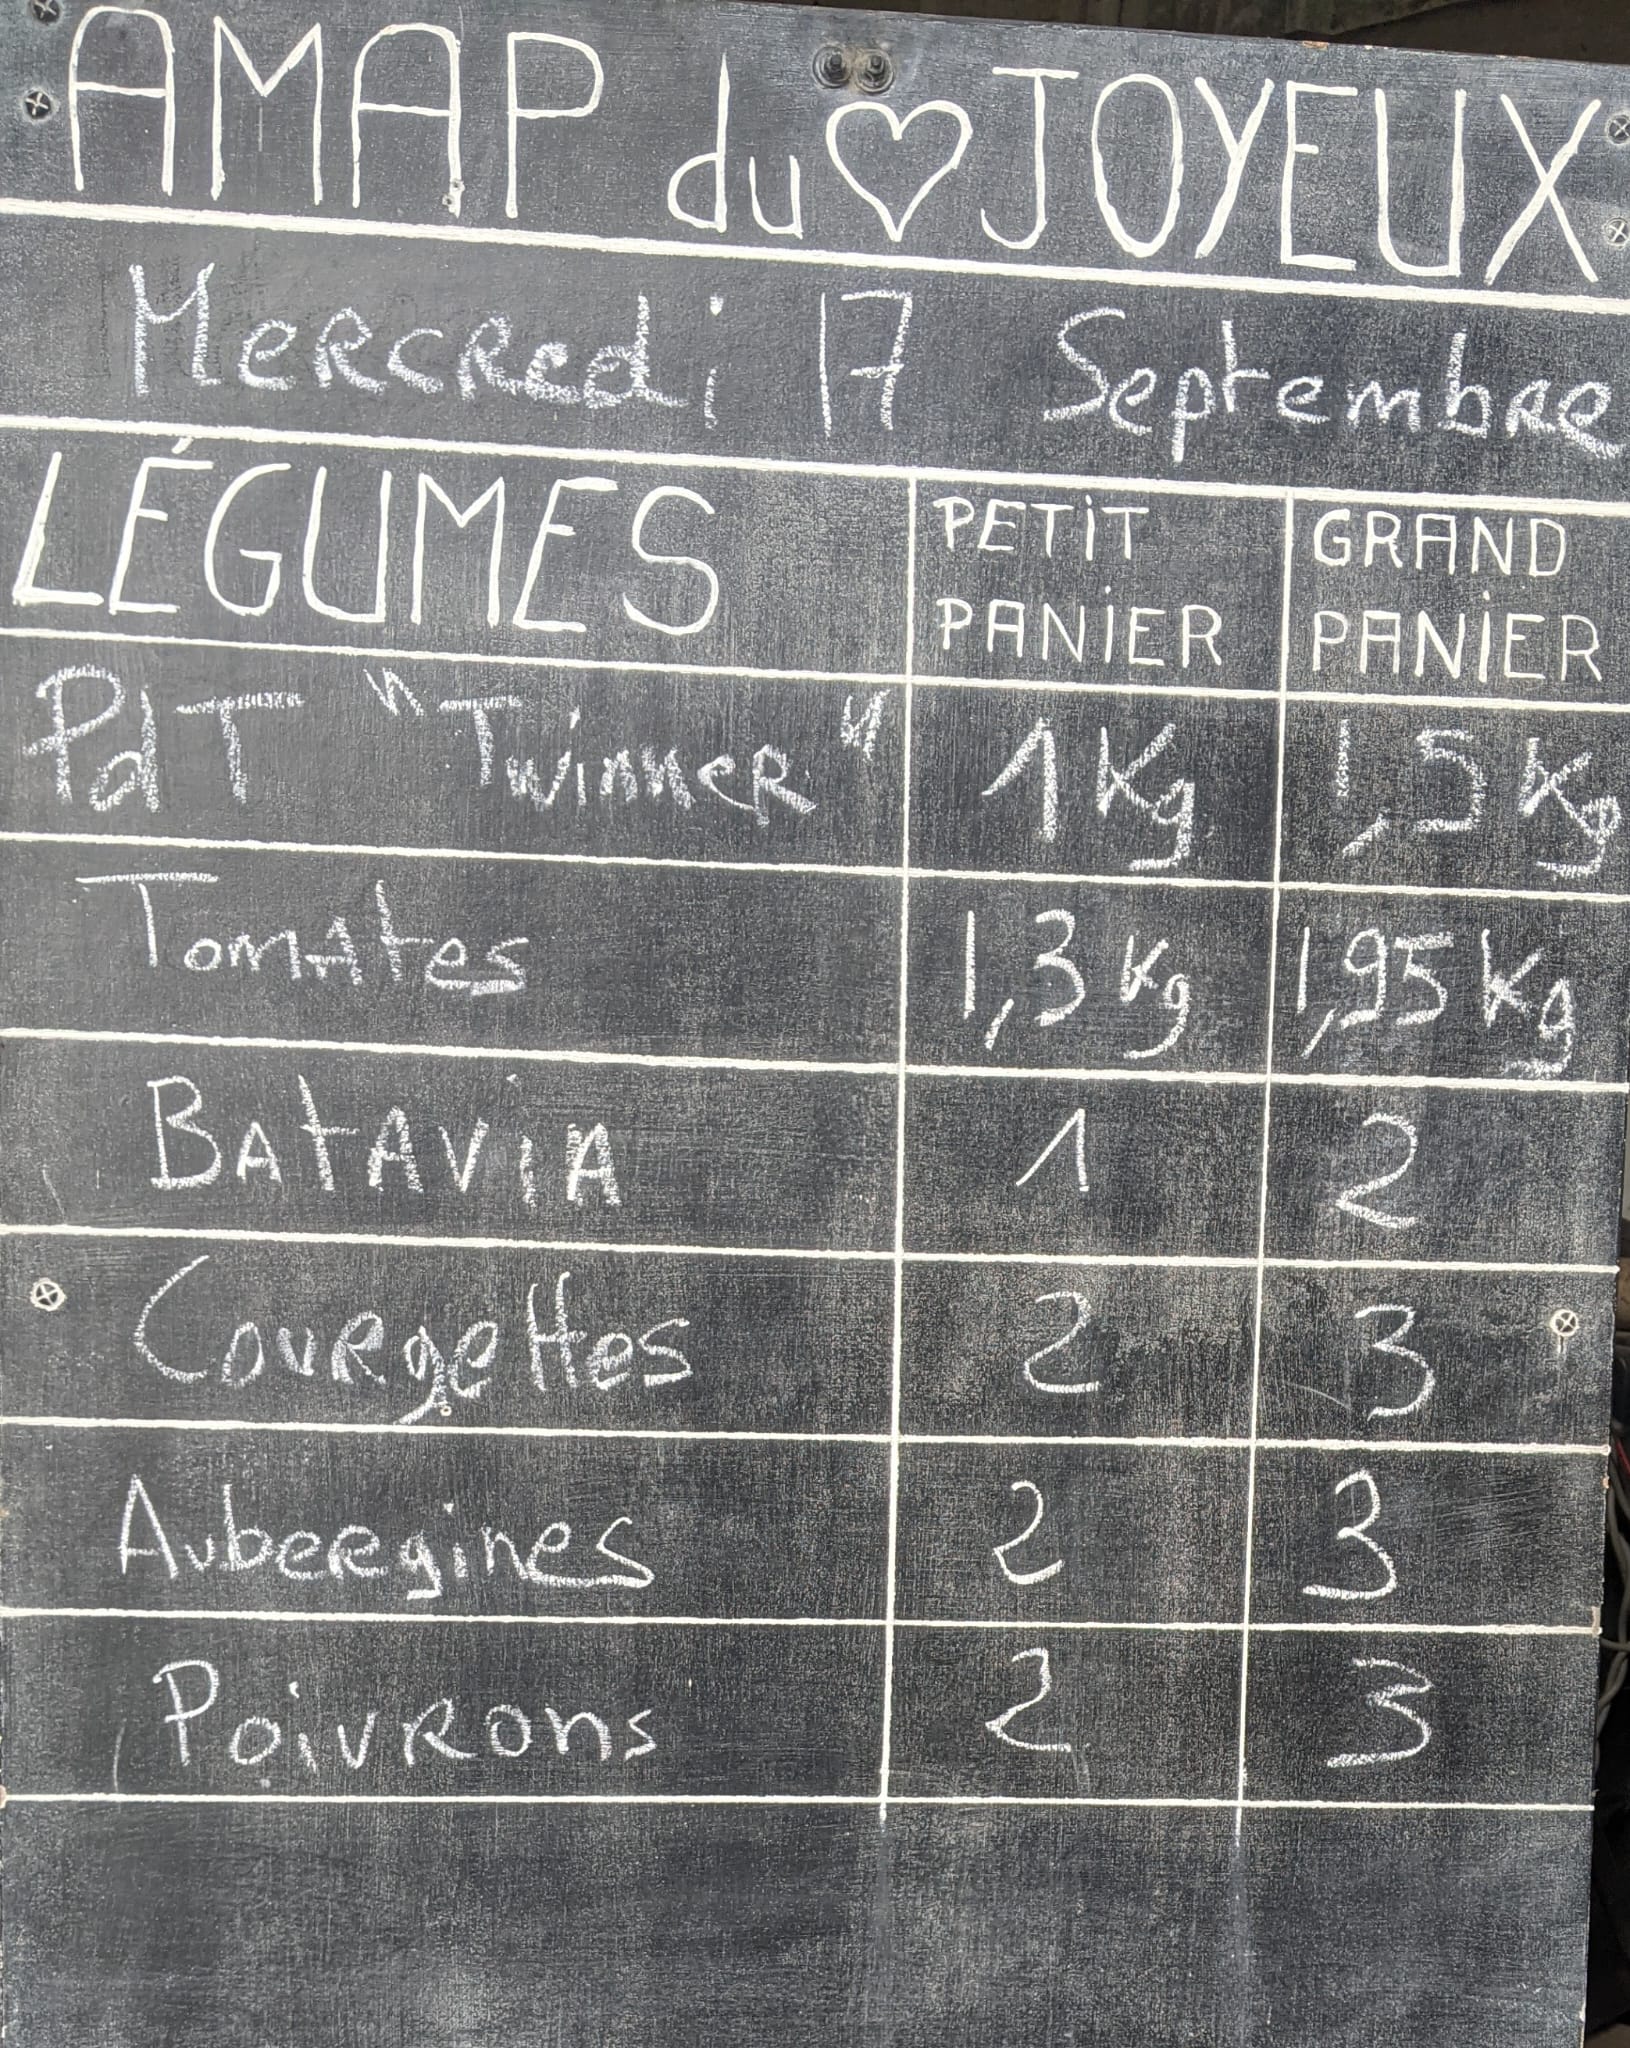 AMAP du ♡ JOYEUX
Mercredi 17 Septembre
LÉGUMES PETIT PANIER GRAND PANIER
PdT "Twinner" 1 Kg 1,5 Kg
Tomates 1,3 Kg 1,95 Kg
Batavia 1 2
Courgettes 2 3
Aubergines 2 3
Poivrons 2 3